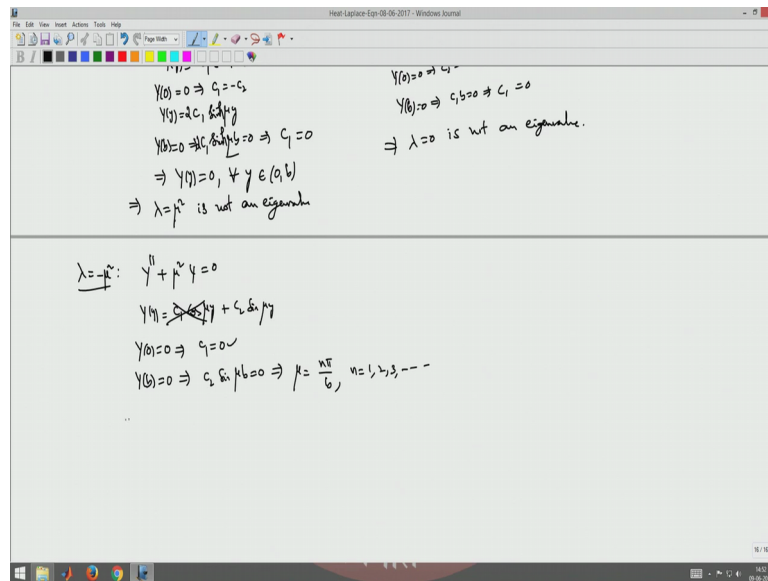 Heat-Laplace-Eqn-08-06-2017 - Windows Journal
File Edit View Insert Actions Tools Help
Page Width
B I
Y(0)=0 ⇒ C₁=-C₂
Y(y)=2C₁ Sinhμy
Y(b)=0 ⇒ 2C₁ Sinhμb=0 ⇒ C₁=0
⇒ Y(y)=0, ∀ y ∈ (0,b)
⇒ λ=μ² is not an eigenvalue
Y(0)=0 ⇒ C₂=
Y(b)=0 ⇒ C₁b=0 ⇒ C₁=0
⇒ λ=0 is not an eigenvalue.
λ=-μ²: Y'' + μ² Y=0
Y(y)= C₁ Cos μy + C₂ Sin μy
Y(0)=0 ⇒ C₁=0✓
Y(b)=0 ⇒ C₂ Sin μb=0 ⇒ μ= nπ/b, n=1,2,3,----
16 / 16
14:52
09-06-2017